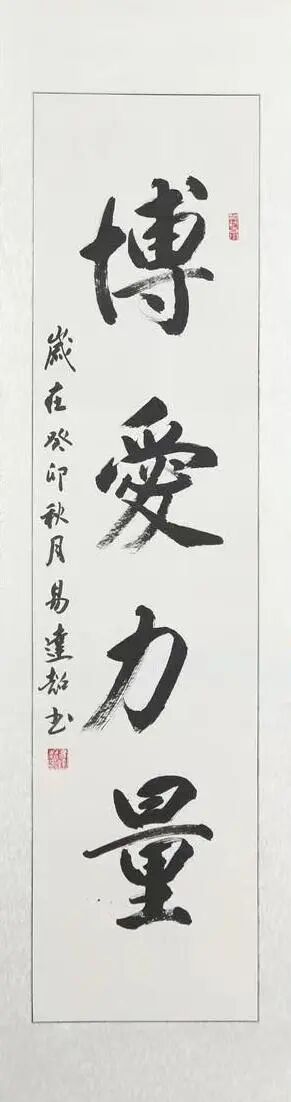 博愛力量
歲在癸卯秋月易達韶书